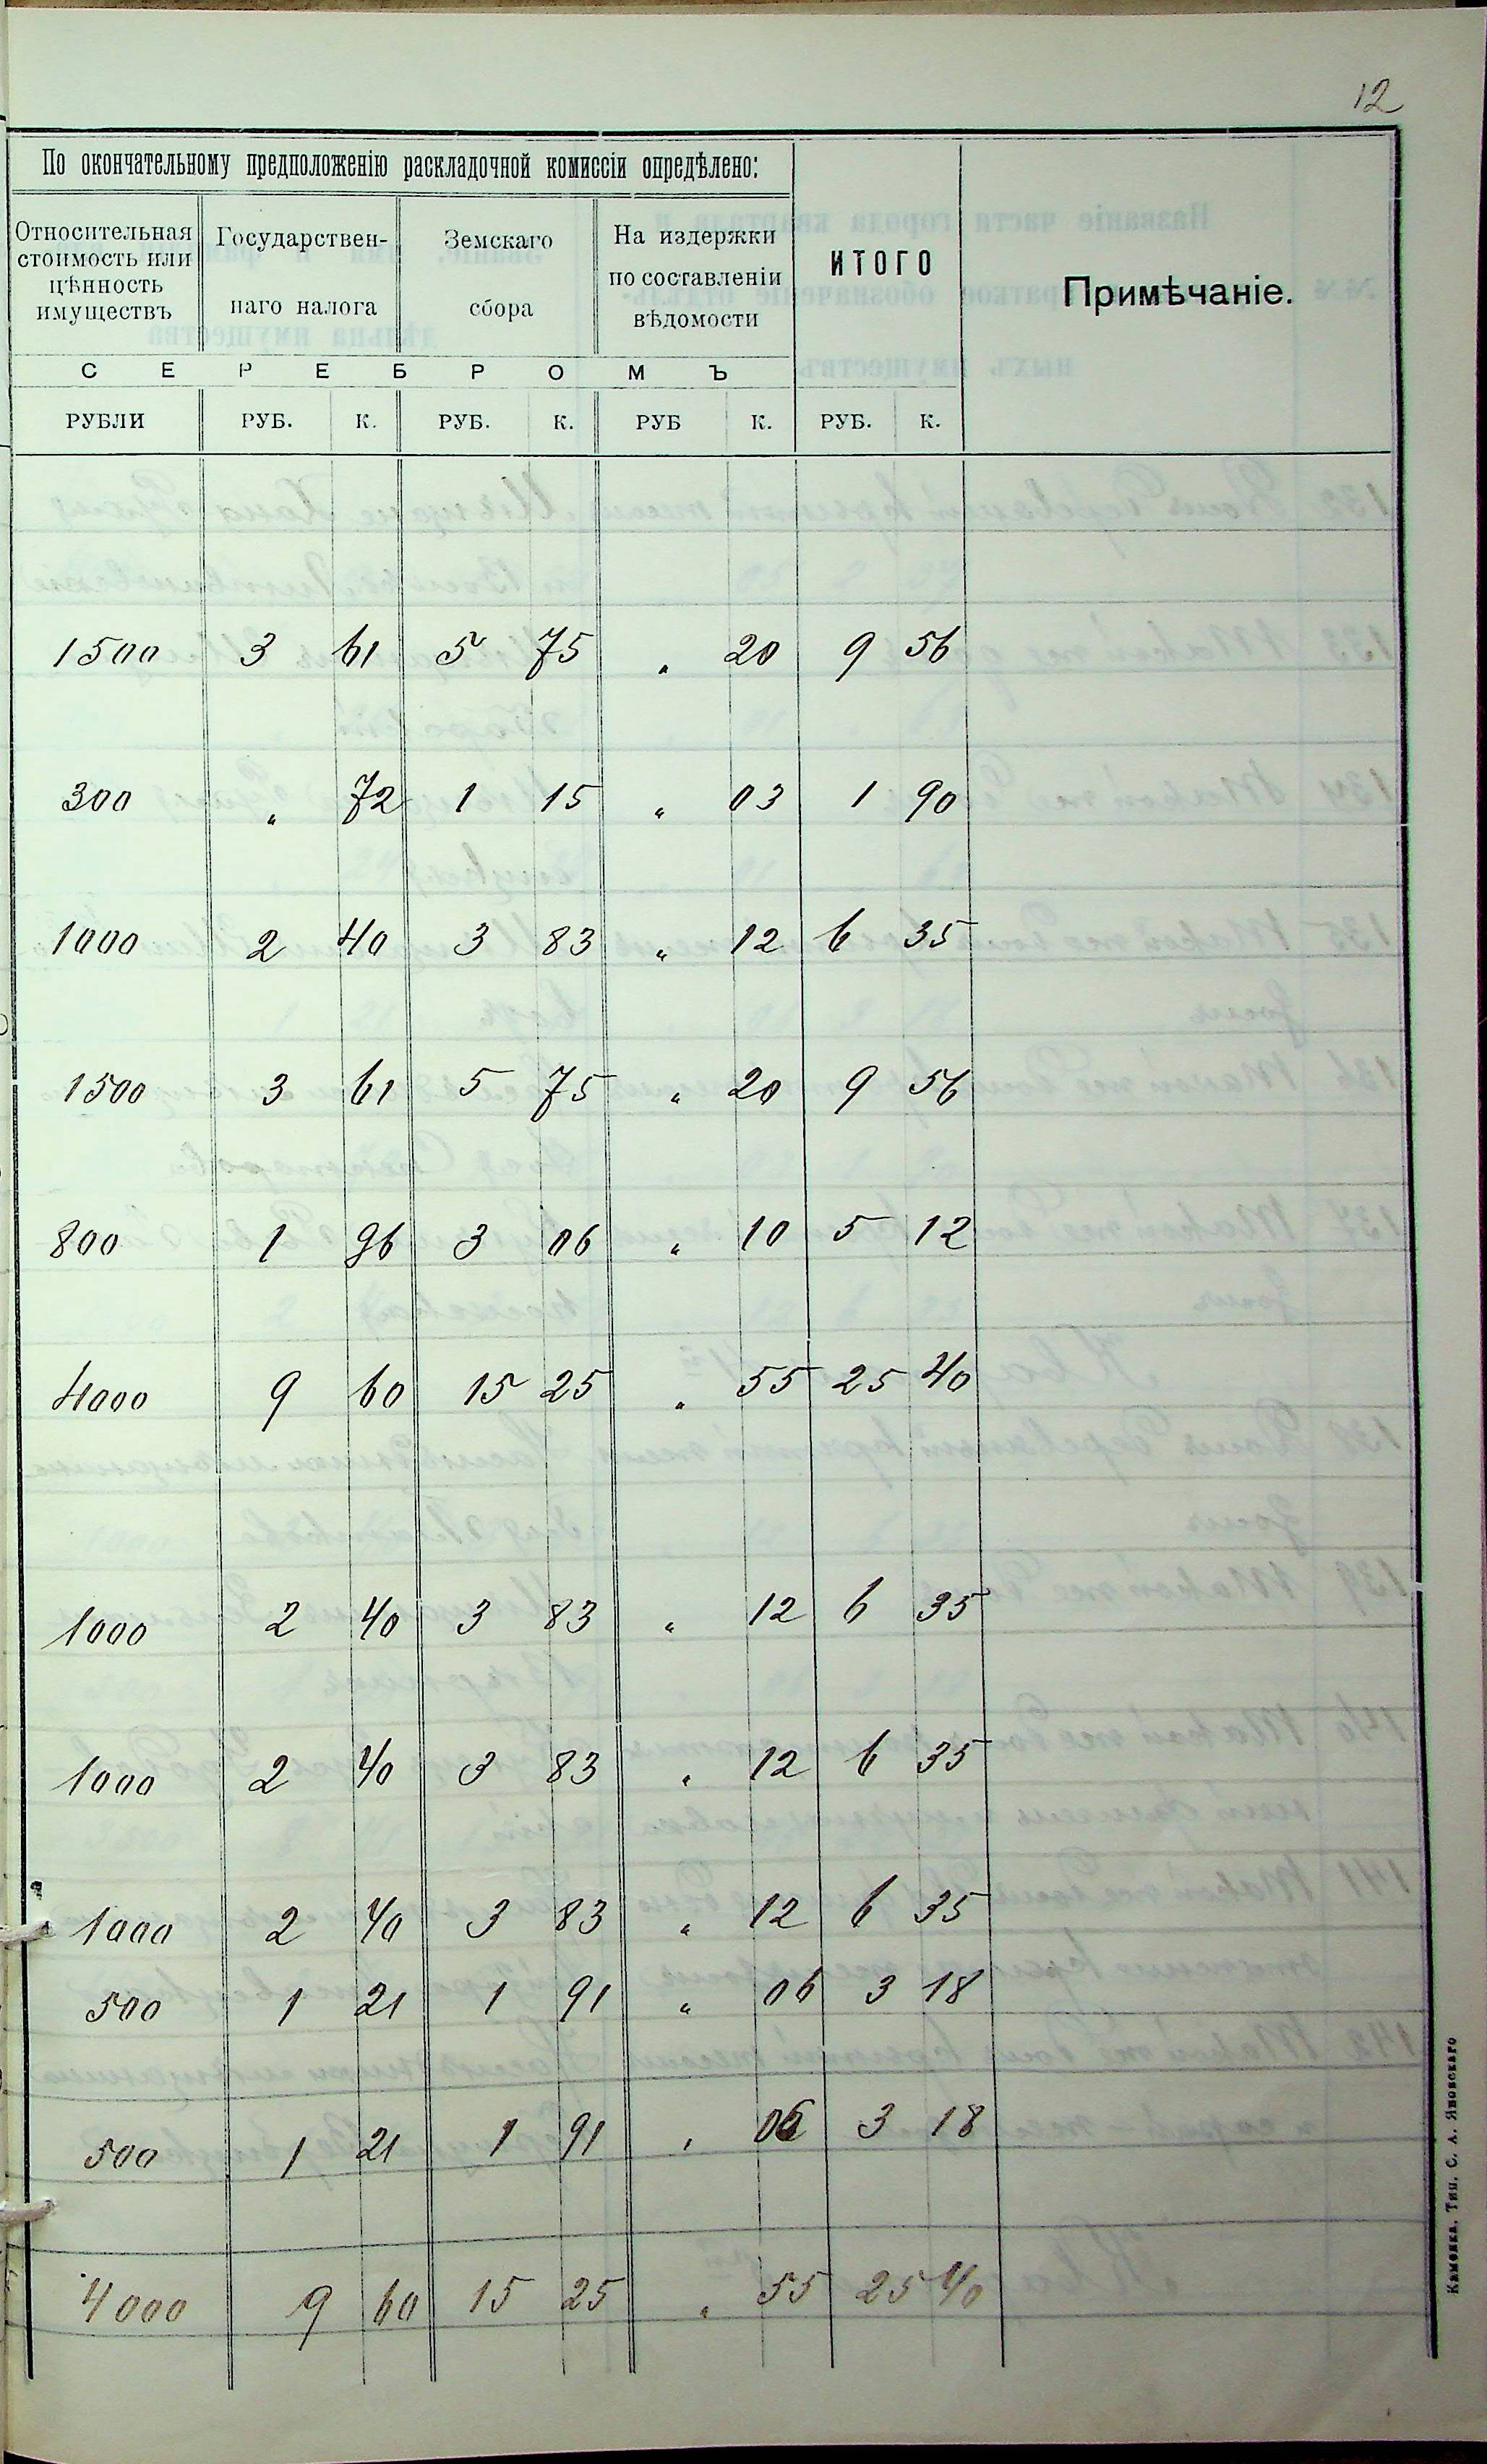 12
По окончательному предположенію раскладочной комиссіи опредѣлено:
Относительная стоимость или цѣнность имуществъ
Государственнаго налога
Земскаго сбора
На издержки по составленіи вѣдомости
ИТОГО
Примѣчаніе.
С Е Р Е Б Р О М Ъ
РУБЛИ РУБ. К. РУБ. К. РУБ К. РУБ. К.
1500 3 61 5 75 „ 20 9 56
300 „ 72 1 15 „ 03 1 90
1000 2 40 3 83 „ 12 6 35
1500 3 61 5 75 „ 20 9 56
800 1 96 3 06 „ 10 5 12
4000 9 60 15 25 „ 55 25 40
1000 2 40 3 83 „ 12 6 35
1000 2 40 3 83 „ 12 6 35
1000 2 40 3 83 „ 12 6 35
500 1 21 1 91 „ 06 3 18
500 1 21 1 91 „ 06 3 18
4000 9 60 15 25 „ 55 25 40
Каменка. Тип. С. А. Яновскаго